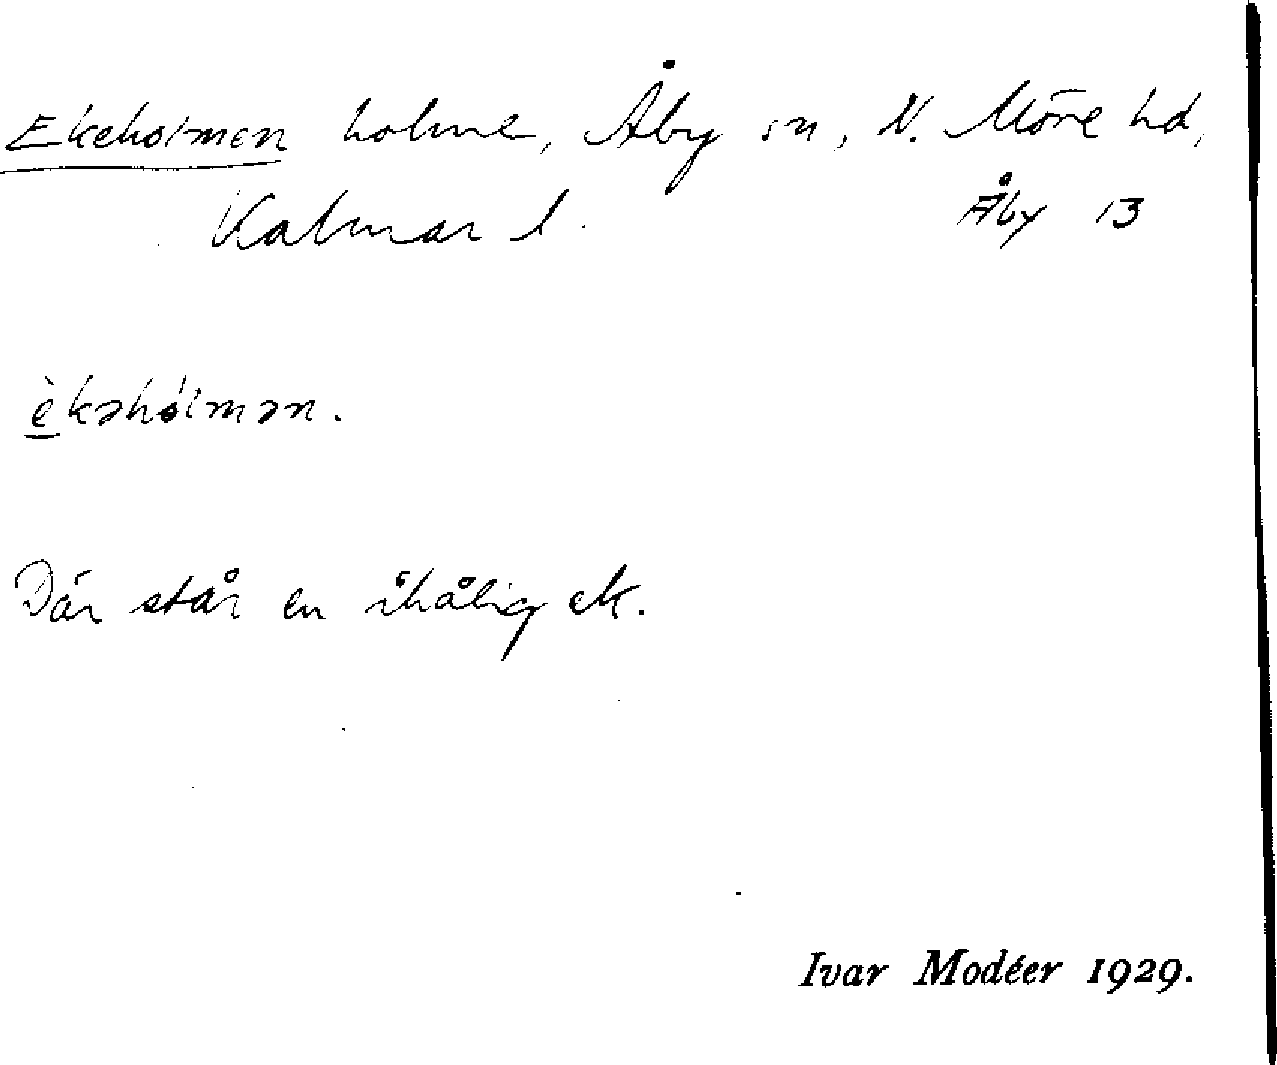 Ekeholmen holme, Åby sn, N. Möre hd,
Kalmar l. Åby 13
èkəhólmən.
Där står en ihålig ek.
Ivar Modéer 1929.